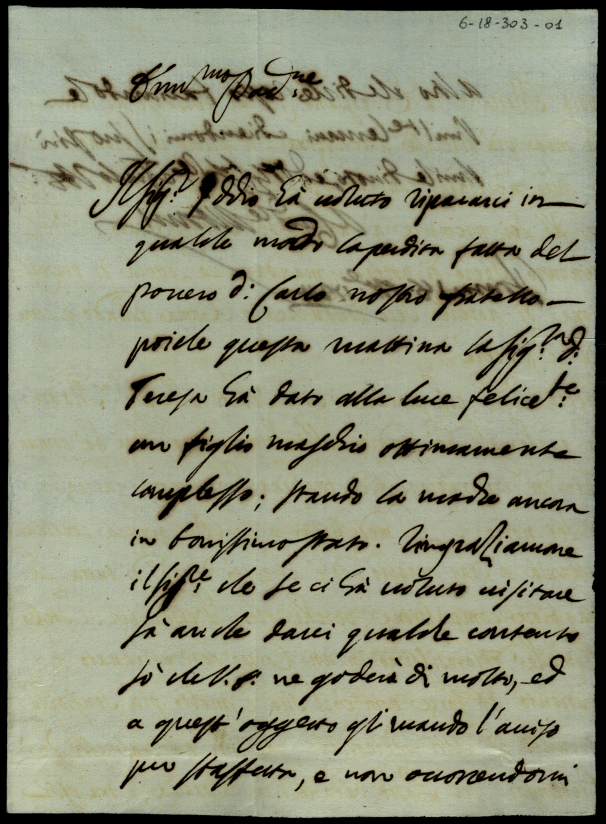 6-18-303-01
Ill.mo Pad.ne
Il Sig.r Iddio hà voluto ripararci in
qualche modo la perdita fatta del
povero d: Carlo nostro fratello
poiche questa mattina la Sig.ra d:
Teresa hà dato alla luce felice.te
un figlio maschio ottimamente
complesso; stando la madre ancora
in bonissimo stato. Ringraziamone
il Sig.re che se ci hà voluto visitare
sà anche darci qualche contento
sò che V.S. ne goderà di molto, ed
a quest'oggetto gli mando l'aviso
per staffetta, e non occorrendomi